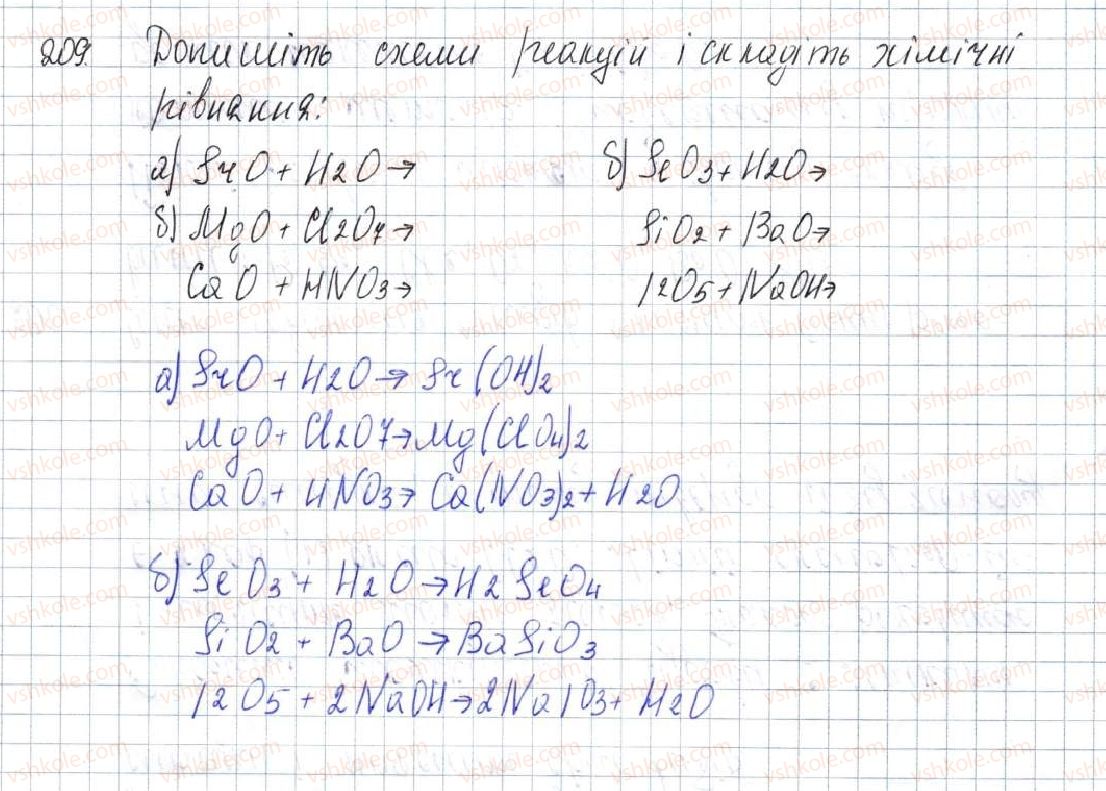 209. Допишіть схеми реакцій і складіть хімічні
рівняння:
а) SrO + H2O → б) SeO3 + H2O →
б) MgO + Cl2O7 → SiO2 + BaO →
CaO + HNO3 → I2O5 + NaOH →
а) SrO + H2O → Sr(OH)2
MgO + Cl2O7 → Mg(ClO4)2
CaO + HNO3 → Ca(NO3)2 + H2O
б) SeO3 + H2O → H2SeO4
SiO2 + BaO → BaSiO3
I2O5 + 2NaOH → 2NaIO3 + H2O
vshkole.com